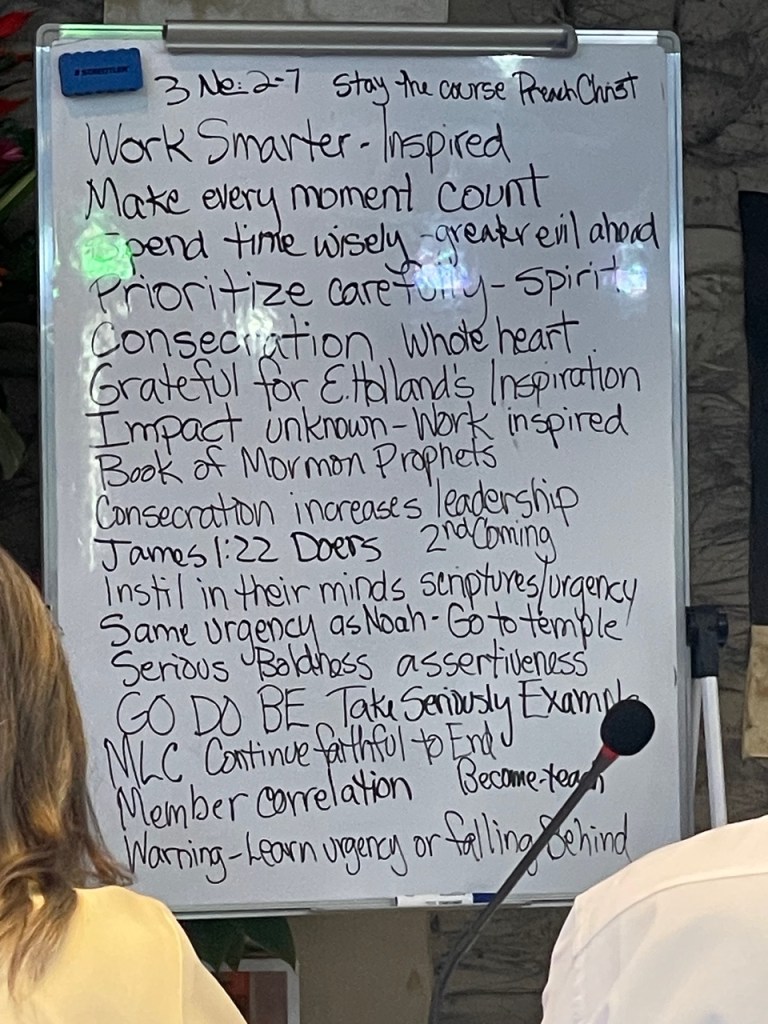 STAEDTLER
3 Ne: 2-7 Stay the course Preach Christ
Work Smarter - Inspired
Make every moment count
Spend time wisely - greater evil ahead
Prioritize carefully - Spirit
Consecration Whole heart
Grateful for E. Holland's Inspiration
Impact unknown - Work inspired
Book of Mormon Prophets
Consecration increases leadership
James 1:22 Doers 2nd Coming
Instil in their minds scriptures/urgency
Same urgency as Noah - Go to temple
Serious Boldness assertiveness
GO DO BE Take Seriously Example
MLC Continue faithful to End
Member correlation Become - teach
Warning - Learn urgency or falling Behind